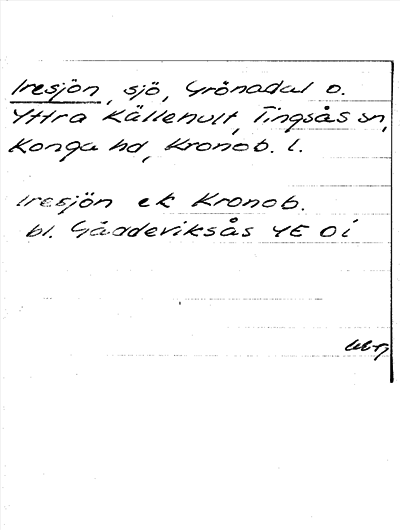 Iresjön, sjö, Grönadal o.
Yttra Källehult, Tingsås sn,
Konga hd, Kronob. l.
Iresjön ek Kronob.
bl. Gåddeviksås 4E 0i